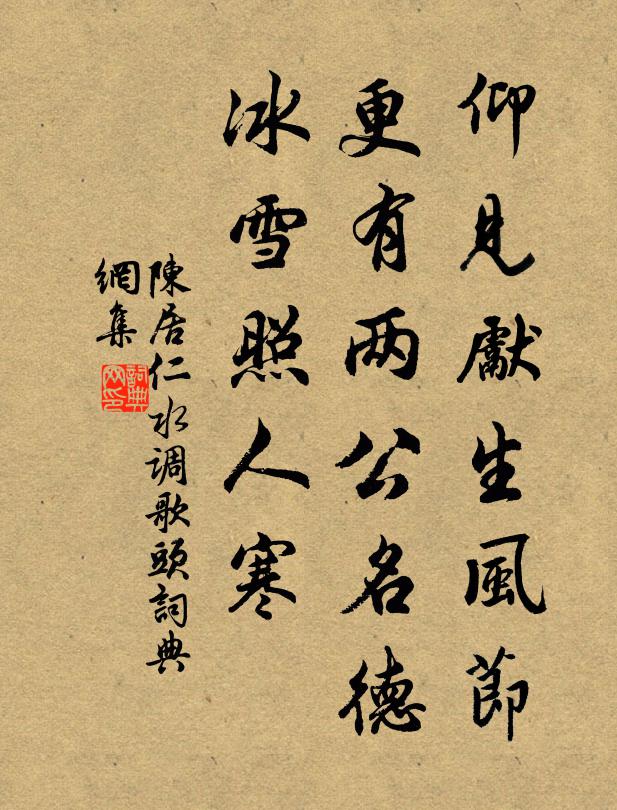 仰見獻生風節
更有两公名德
冰雪照人寒
陳居仁水调歌頭詞典
網集
詞典
网印